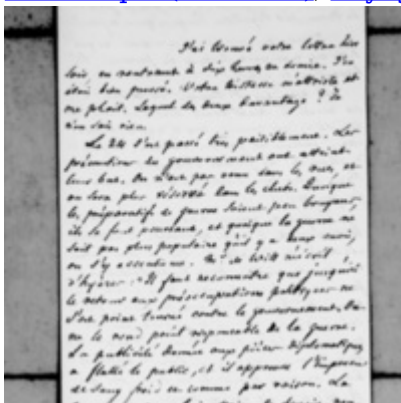 J'ai trouvé votre lettre hier
soir, en rentrant à dix heures et demie. J'en
étais bien pressé. Votre tristesse m'attriste et
me plaît. Lequel des deux davantage ? Je
n'en sais rien.
Le 24 s'est passé très paisiblement. Les
précautions du gouvernement ont atteint
leur but. On n'est pas venu dans les rues, et
on sera plus réservé dans les clubs. Quoique
les préparatifs de guerre soient peu bruyants,
ils se font pourtant, et quoique la guerre ne
soit pas plus populaire qu'il y a deux mois,
on s'y accoutume. Mr de Witt m'écrit
d'Hyères : "Il faut reconnaître que jusqu'ici
le retour aux préoccupations politiques ne
s'est point tourné contre le gouvernement. On
ne le rend point responsable de la guerre.
La publicité donnée aux pièces diplomatiques
a flatté le public, et il approuve l'Empereur
de sang froid et comme par raison. La